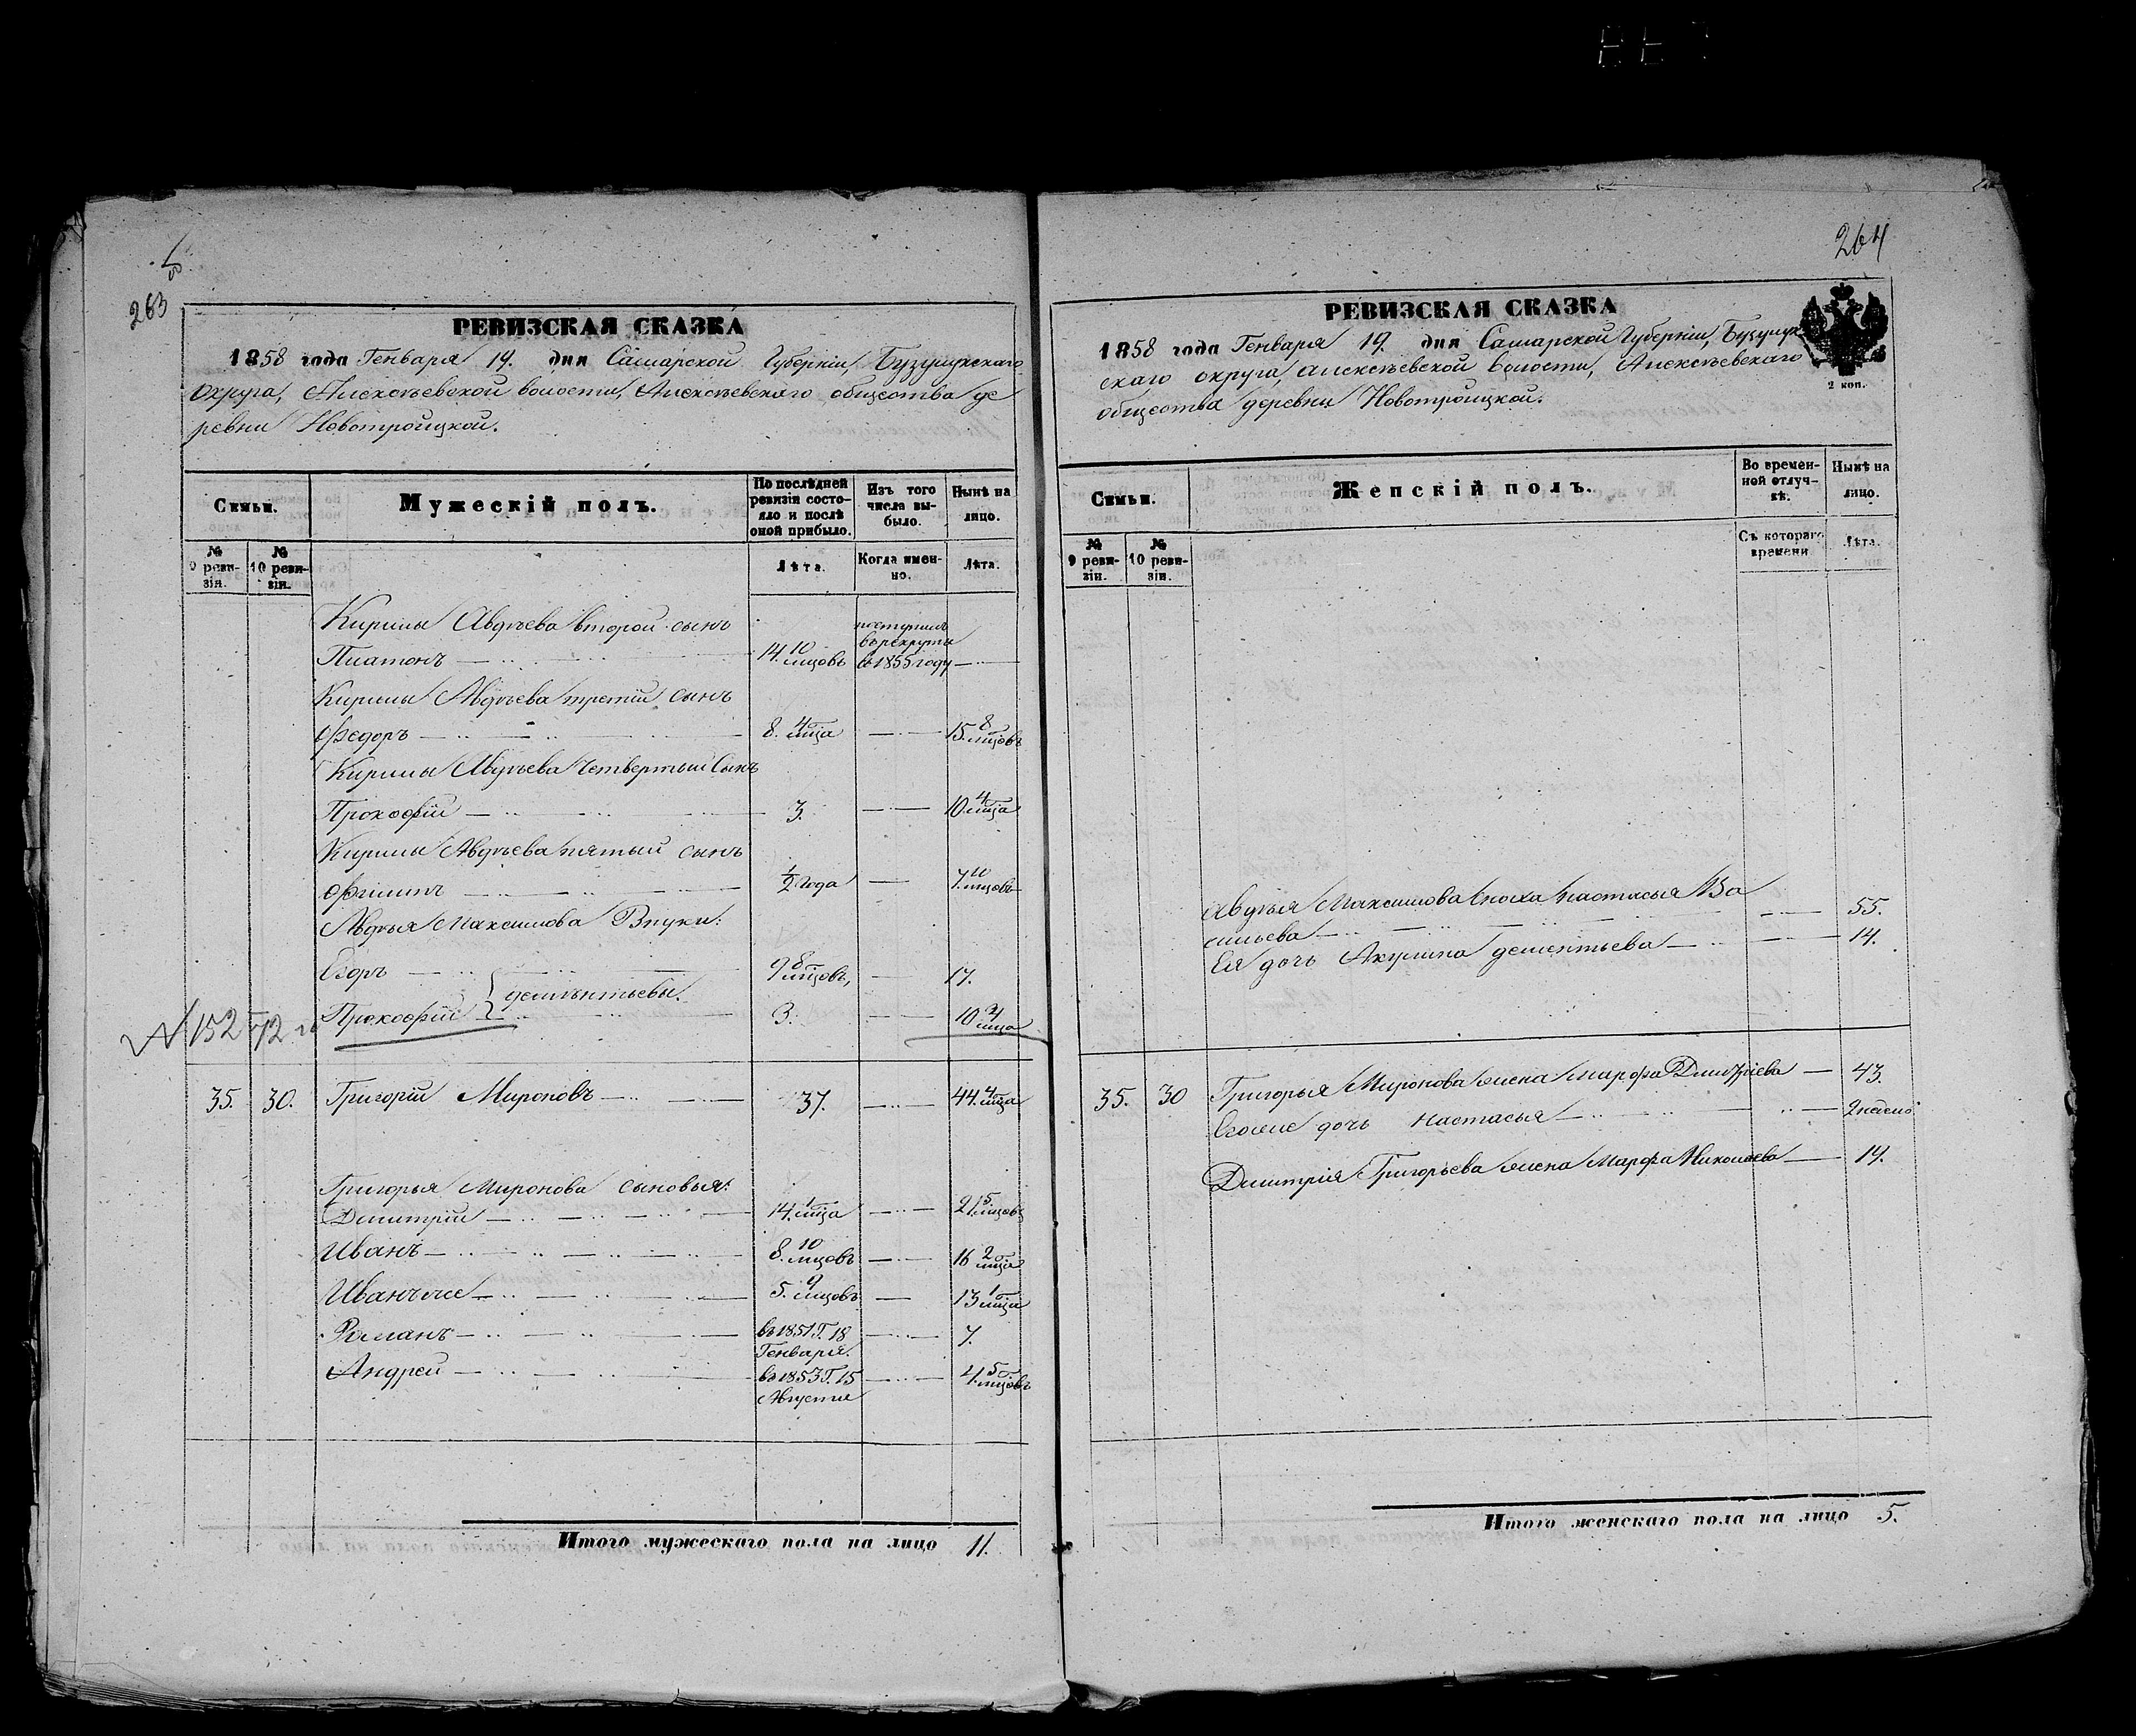 263
РЕВИЗСКАЯ СКАЗКА
1858 года Генваря 19. дня Самарской Губерніи, Бузулукскаго
Округа, Алексѣевской волости, Алексѣевскаго общества де
ревни Новотроицкой.
Семьи.
Мужескій полъ.
По послѣдней ревизіи состояло и послѣ оной прибыло.
Изъ того числа выбыло.
Нынѣ на лицо.
№ 9 ревизіи.
№ 10 ревизіи.
Лѣта.
Когда именно.
Лѣта.
Кирилы Авдѣева второй сынъ
Платонъ 14. 10 мцовъ поступилъ въ рекруты въ 1855 году
Кирилы Авдѣева третій сынъ
Федоръ 8. 4 мца 15. 8 мцовъ
Кирилы Авдѣева четвертый сынъ
Прокофій 3. 10. 4 мца
Кирилы Авдѣева пятый сынъ
Филипъ 1/2 года 7. 10 мцовъ
Авдѣя Максимова Внуки:
Егоръ 9. 8 мцовъ, 17.
Дементьевы.
№ 152
Прокофій 3. 10 4 мца
35. 30. Григорій Мироновъ 37. 44. 4 мца
Григорья Миронова сыновья:
Дмитрій 14. 1 мца 21. 5 мцовъ
Иванъ 8. 10 мцовъ 16 2 мца
Иванъ же 5. 9 мцовъ 13 1 мца
Романъ въ 1851 Г. 18 Генваря. 7.
Андрей въ 1853 Г. 15 Августа 4. 5 мцовъ
Итого мужескаго пола на лицо 11.
264
РЕВИЗСКАЯ СКАЗКА
1858 года Генваря 19. дня Самарской Губерніи, Бузулук
скаго округа, Алексѣевской волости, Алексѣевскаго
общества деревни Новотроицкой.
2 коп.
Семьи.
Женскій полъ.
Во временной отлучкѣ.
Нынѣ на лицо.
№ 9 ревизіи.
№ 10 ревизіи.
Съ котораго времени
Лѣта.
Авдѣя Максимова сноха Настасья Ва
сильева 55.
Ея дочь Акулина Дементьева 14.
35. 30 Григорья Миронова жена Марфа Дмитріева 43.
Егоже дочь Настасья
Дмитрія Григорьева жена Марфа Николаева 19.
Итого женскаго пола на лицо 5.